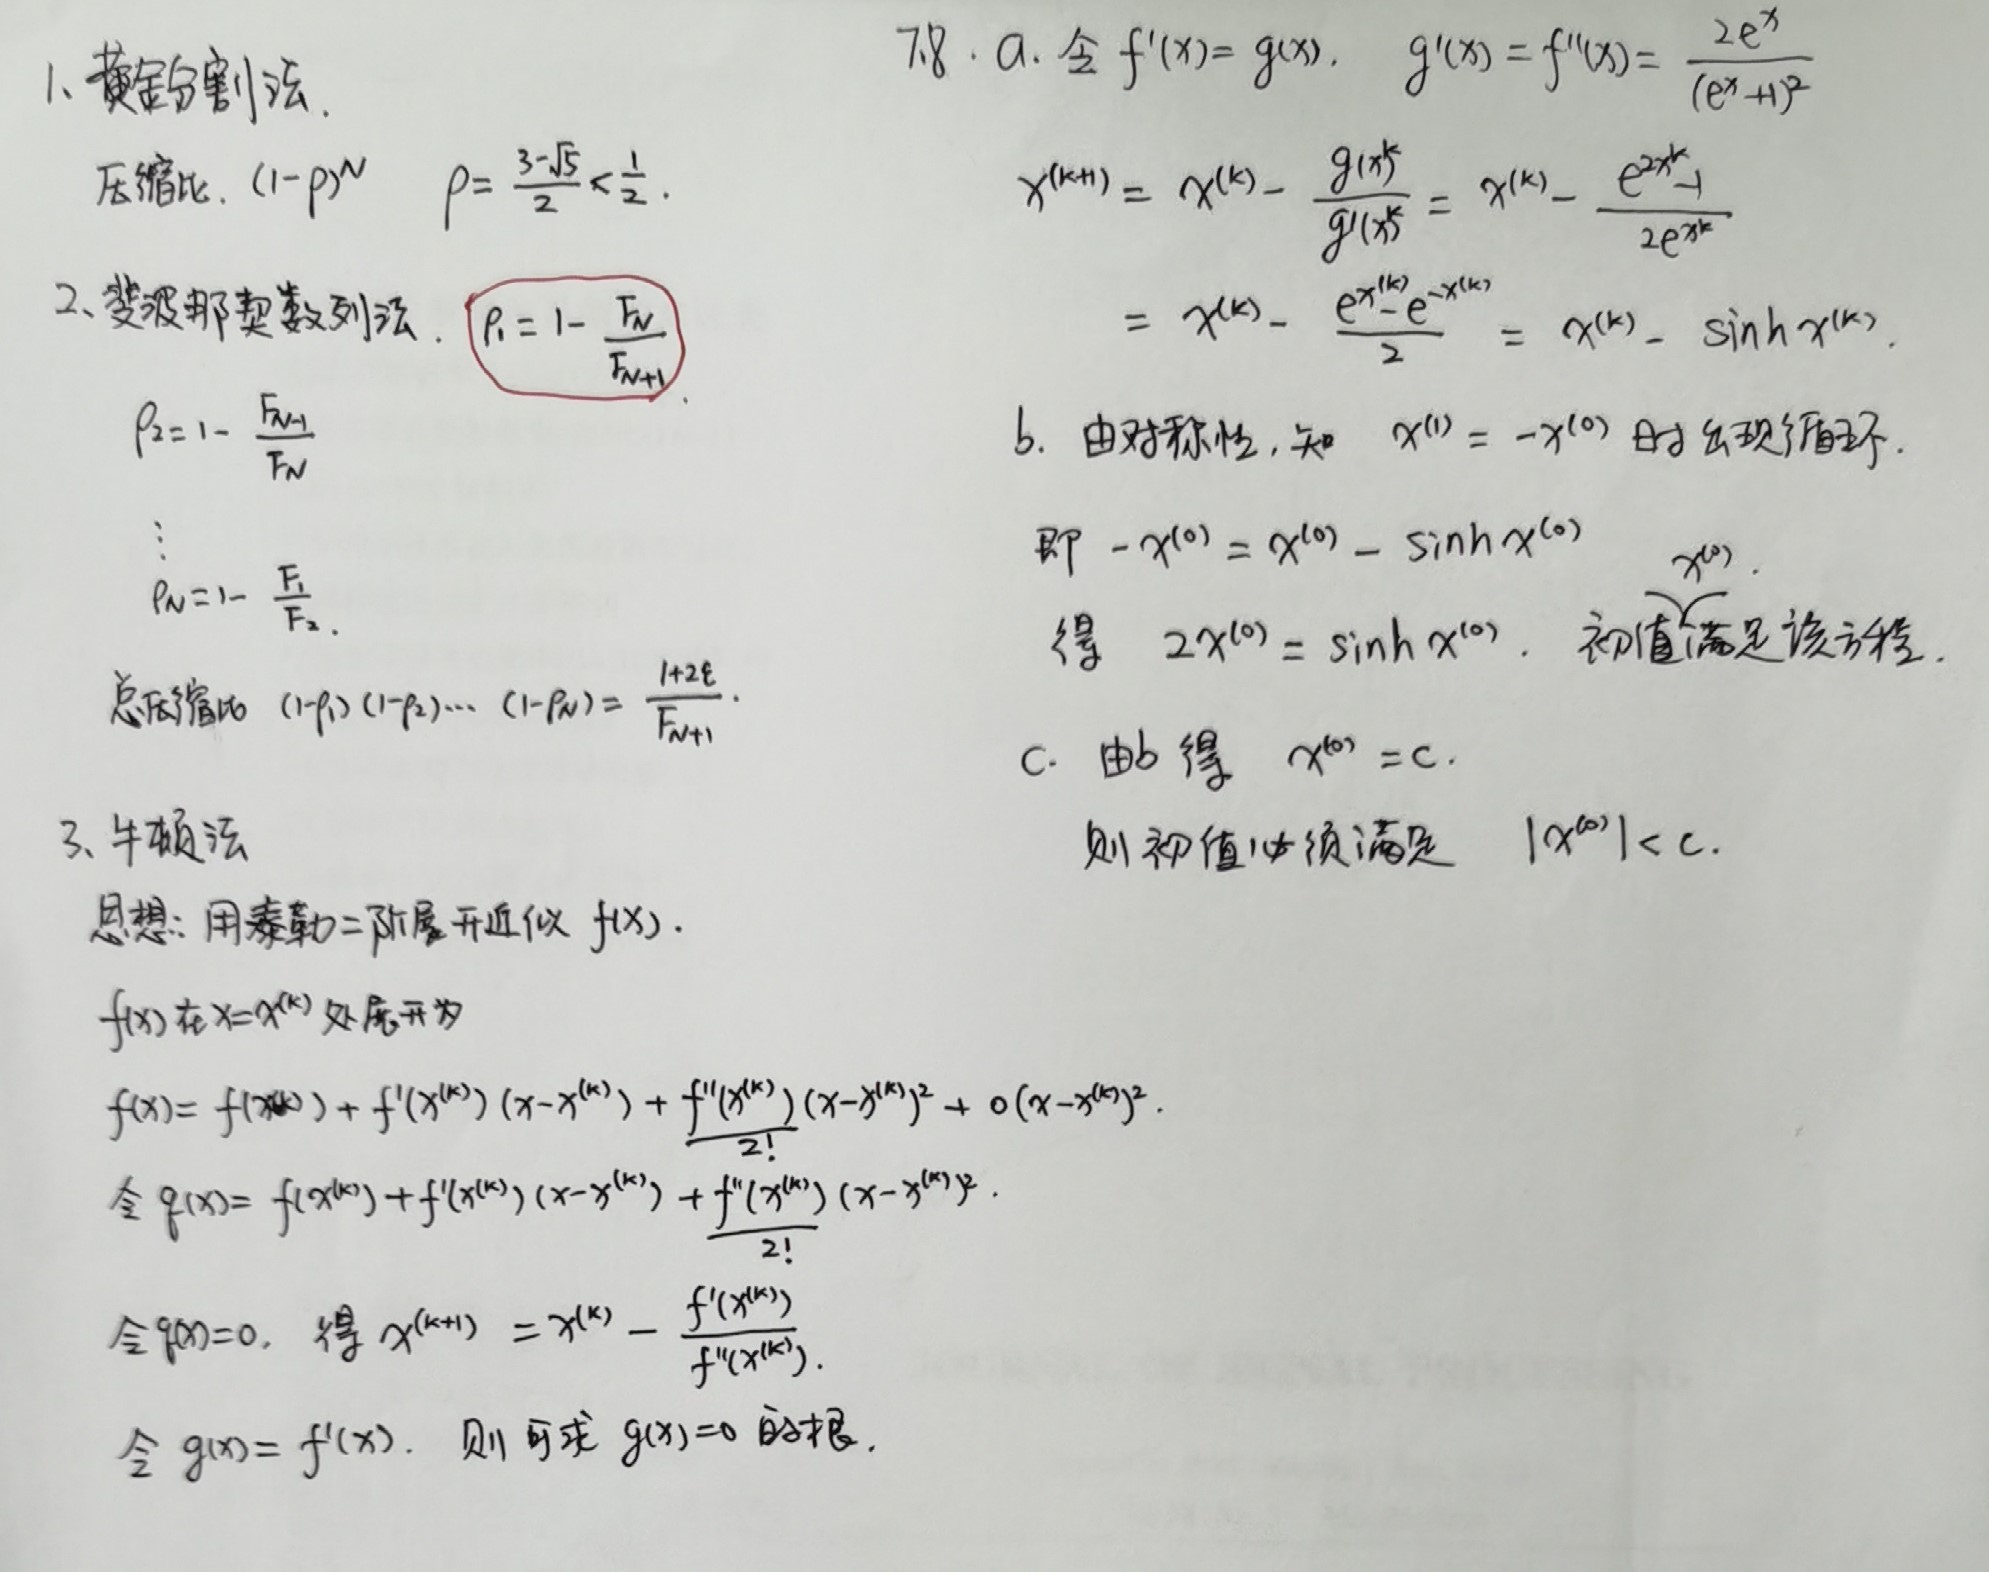 1、黄金分割法.
压缩比. (1-ρ)^N ρ= (3-√5)/2 < 1/2 .
2、斐波那契数列法. ρ₁ = 1 - F_N/F_{N+1} .
ρ₂ = 1 - F_{N-1}/F_N
⋮
ρ_N = 1 - F₁/F₂ .
总压缩比 (1-ρ₁)(1-ρ₂)… (1-ρ_N) = (1+2ε)/F_{N+1} .
3、牛顿法
思想: 用泰勒二阶展开近似 f(x).
f(x) 在 x=x^(k) 处展开为
f(x) = f(x^(k)) + f'(x^(k)) (x-x^(k)) + f''(x^(k))/2! (x-x^(k))² + o(x-x^(k))² .
令 q(x) = f(x^(k)) + f'(x^(k)) (x-x^(k)) + f''(x^(k))/2! (x-x^(k))² .
令 q'(x)=0. 得 x^(k+1) = x^(k) - f'(x^(k))/f''(x^(k)) .
令 g(x) = f'(x). 则可求 g(x)=0 的根.
7.8. a. 令 f'(x) = g(x). g'(x) = f''(x) = 2e^x/(e^x+1)²
x^(k+1) = x^(k) - g(x)^k/g'(x)^k = x^(k) - (e^{2x^k}-1)/(2e^{x^k})
= x^(k) - (e^{x^(k)} - e^{-x^(k)})/2 = x^(k) - sinh x^(k).
b. 由对称性, 知 x^(1) = -x^(0) 时出现循环.
即 -x^(0) = x^(0) - sinh x^(0)
得 2x^(0) = sinh x^(0). 初值 x^(0) 满足该方程.
c. 由b得 x^(0) = c.
则初值必须满足 |x^(0)| < c.